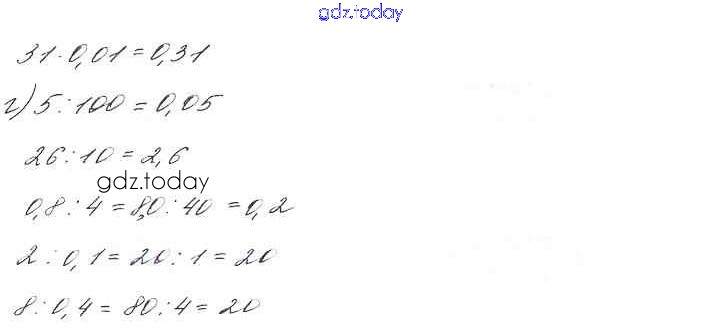 gdz.today
31·0,01=0,31
г) 5:100=0,05
26:10=2,6
gdz.today
0,8:4=8,0:40=0,2
2:0,1=20:1=20
8:0,4=80:4=20